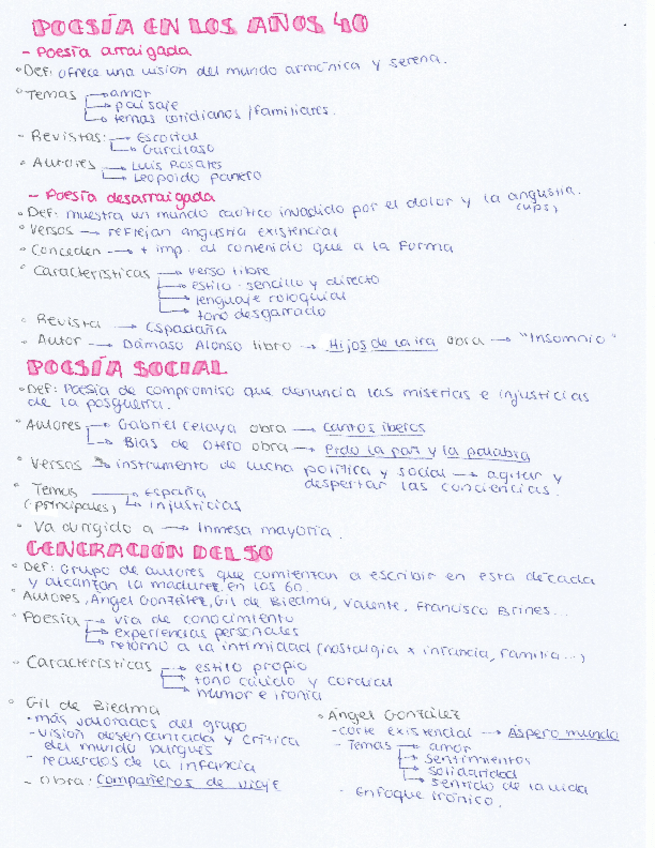 POESÍA EN LOS AÑOS 40
- Poesía arraigada
° Def: ofrece una visión del mundo armónica y serena.
° Temas → amor
→ paisaje
→ temas cotidianos / familiares.
- Revistas: → Escorial
→ Garcilaso
° Autores → Luis Rosales
→ Leopoldo Panero
- Poesía desarraigada
° Def: muestra un mundo caótico invadido por el dolor y la angustia.
(ups)
° Versos → reflejan angustia existencial
° Conceden → + imp. al contenido que a la forma
° Características → verso libre
→ estilo sencillo y directo
→ lenguaje coloquial
→ tono desgarrado
° Revista → Espadaña
- Autor → Dámaso Alonso libro → Hijos de la ira obra → "Insomnio"
POESÍA SOCIAL
° Def: Poesía de compromiso que denuncia las miserias e injusticias
de la posguerra.
° Autores → Gabriel Celaya obra → Cantos íberos
→ Blas de Otero obra → Pido la paz y la palabra
° Versos → instrumento de lucha política y social → agitar y
despertar las conciencias.
° Temas → España
(principales) → injusticias
° Va dirigido a → Inmesa mayoría.
GENERACIÓN DEL 50
° Def: Grupo de autores que comienzan a escribir en esta década
y alcanzan la madurez en los 60.
° Autores, Ángel González, Gil de Biedma, Valente, Francisco Brines...
° Poesía → vía de conocimiento
→ experiencias personales
→ retorno a la intimidad (nostalgia x infancia, familia...)
° Características → estilo propio
→ tono cálido y cordial
→ humor e ironía
° Gil de Biedma
• más valorados del grupo
- visión desencantada y crítica
del mundo burgués
- recuerdos de la infancia
- Obra: Compañeros de viaje
° Ángel González
- corte existencial → Áspero mundo
- Temas → amor
→ sentimientos
→ solidaridad
→ sentido de la vida
- Enfoque irónico.